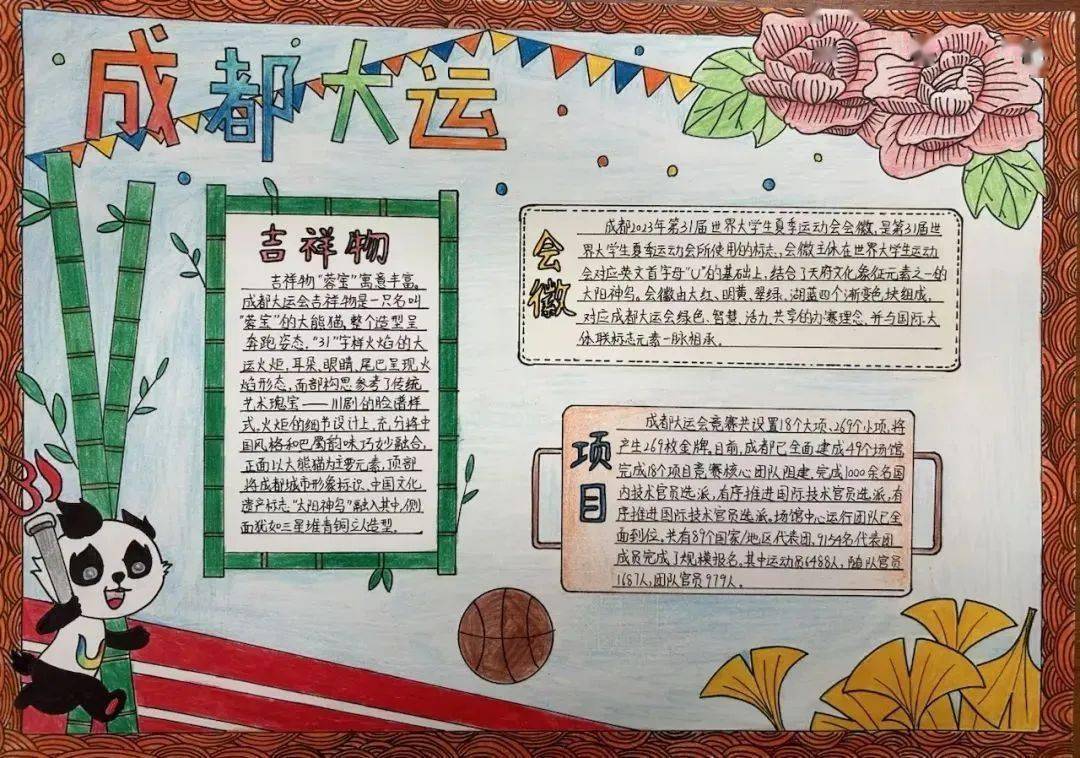 成都大运
吉祥物
吉祥物“蓉宝”寓意丰富。
成都大运会吉祥物是一只名叫
“蓉宝”的大熊猫,整个造型呈
奔跑姿态,“31”字样火焰的大
运火炬,耳朵、眼睛、尾巴呈现火
焰形态,面部构思参考了传统
艺术瑰宝——川剧的脸谱样
式。火炬的细节设计上,充分将中
国风格和巴蜀韵味巧妙融合,
正面以大熊猫为主要元素,顶部
将成都城市形象标识、中国文化
遗产标志“太阳神鸟”融入其中,侧
面犹如三星堆青铜立人造型。
会徽
成都2023年第31届世界大学生夏季运动会会徽,是第31届世
界大学生夏季运动会所使用的标志,会徽主体在世界大学生运动
会对应英文首字母“U”的基础上,结合了天府文化象征元素之一的
太阳神鸟。会徽由大红、明黄、翠绿、湖蓝四个渐变色块组成,
对应成都大运会绿色、智慧、活力、共享的办赛理念,并与国际大
体联标志元素一脉相承。
项目
成都大运会竞赛共设置18个大项、269个小项,将
产生269枚金牌。目前,成都已全面建成49个场馆,
完成18个项目竞赛核心团队组建,完成1000余名国
内技术官员选派,有序推进国际技术官员选派,有
序推进国际技术官员选派。场馆中心运行团队已全
面到位,共有89个国家/地区代表团,9154名代表团
成员完成了规模报名。其中运动员6488人,随队官员
1687人,团队官员979人。
31